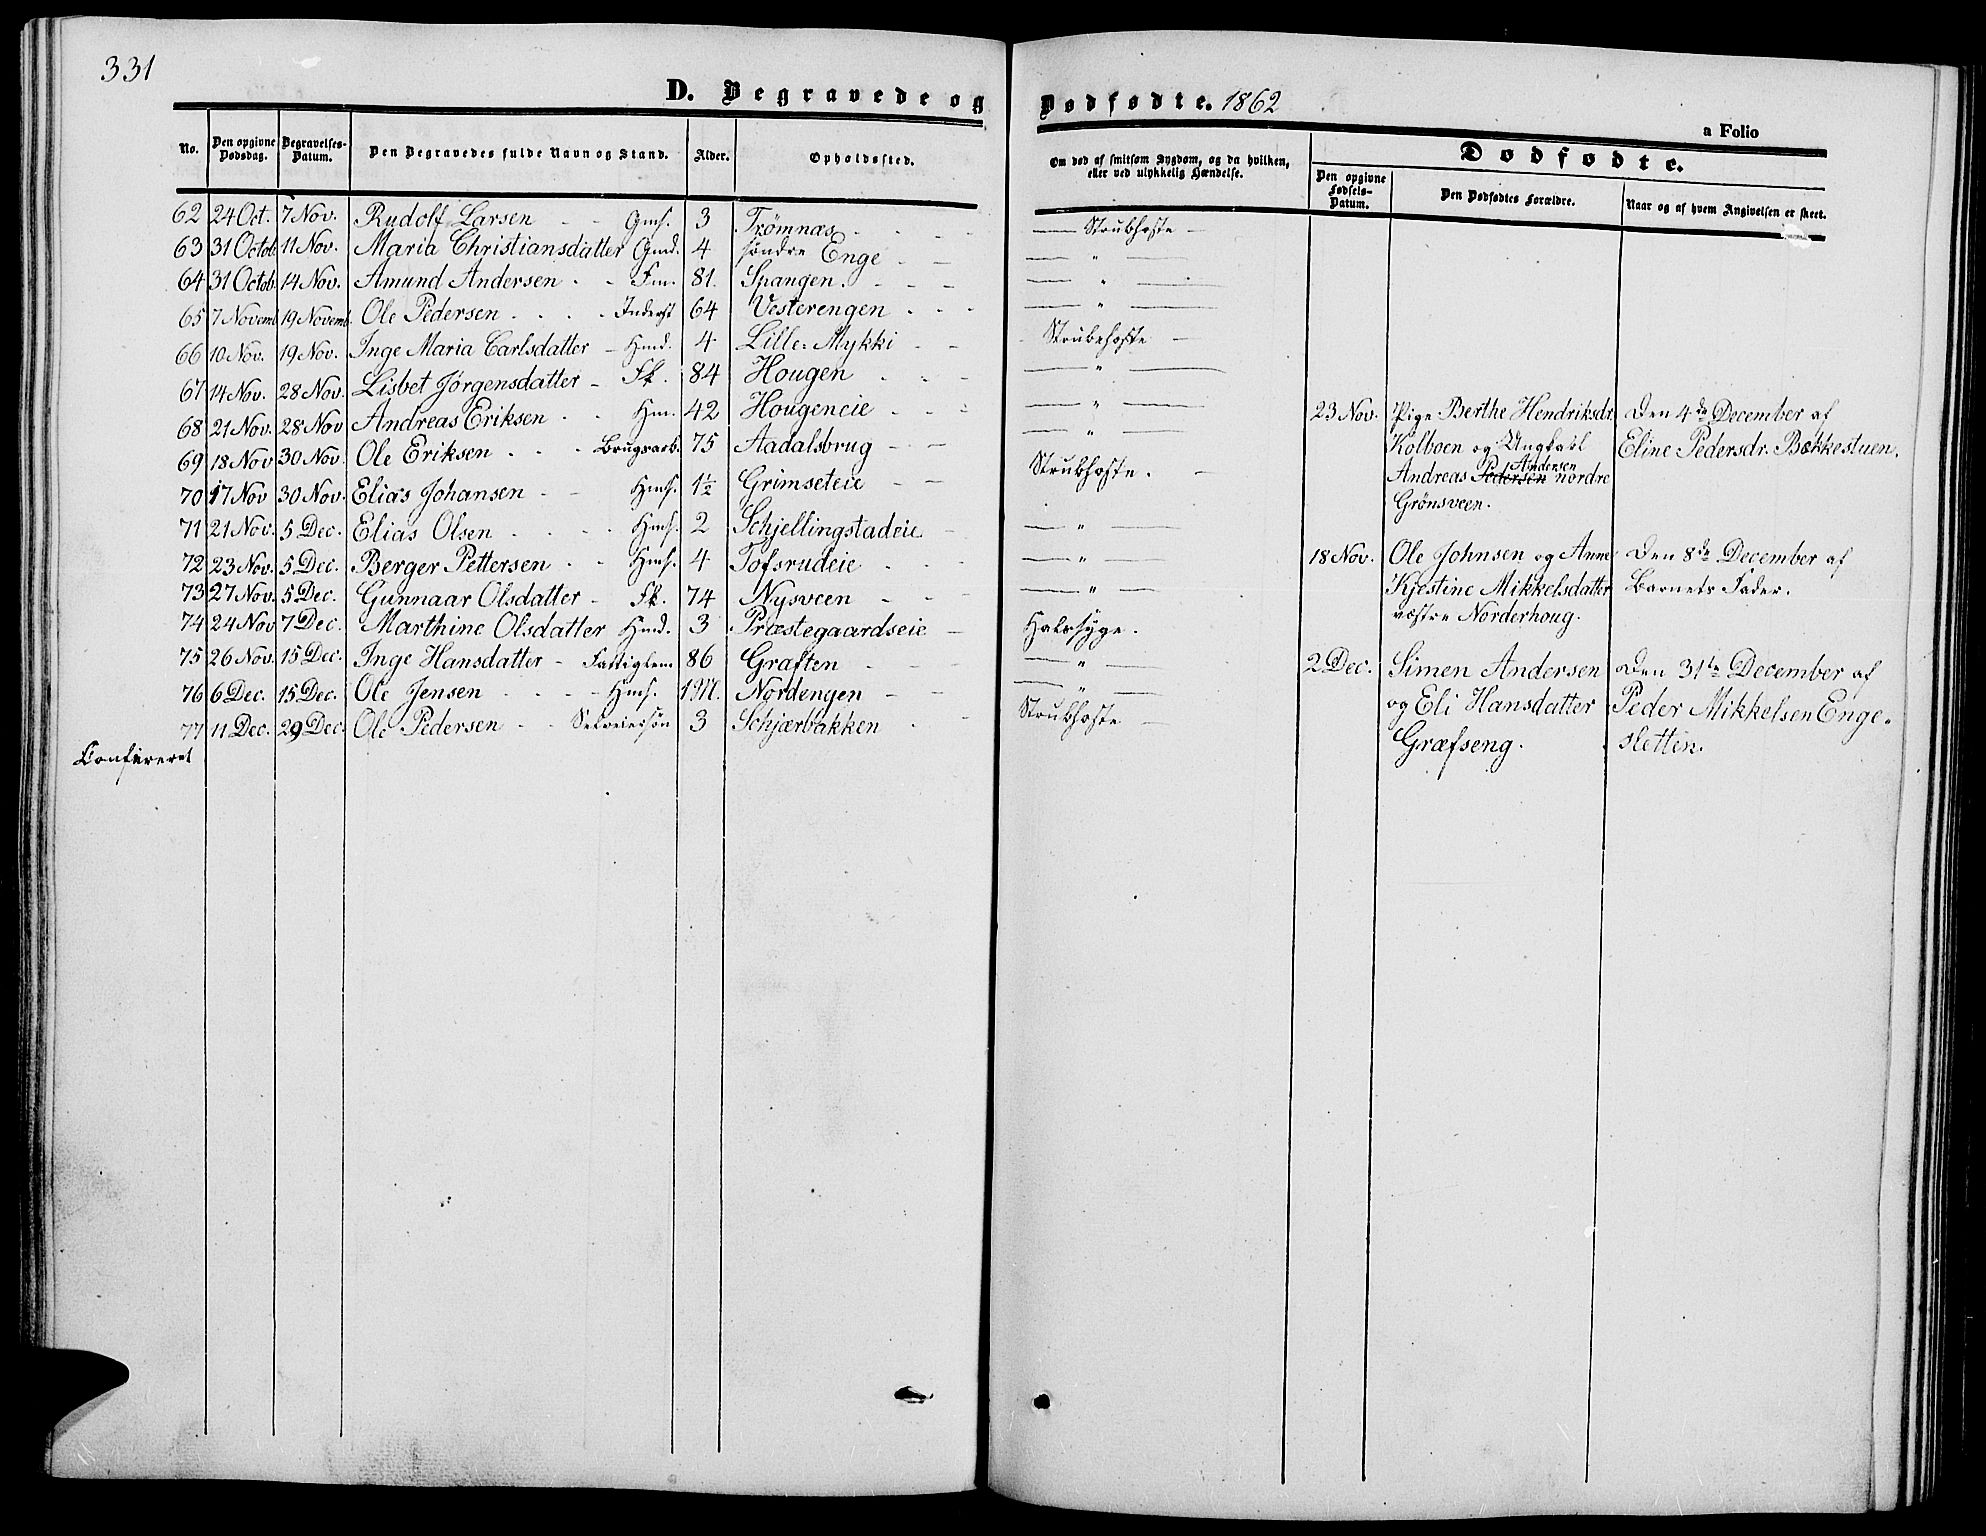 331
D. Begravede og Dødfødte. 1862
a Folio
No. Den opgivne Dødsdag. Begravelses-Datum. Den Begravedes fulde Navn og Stand. Alder. Opholdssted. Om død af smitsom Sygdom, og da hvilken, eller ved ulykkelig Hændelse.
Dødfødte.
Den opgivne Fødsels-Datum. Den Dødfødtes Forældre. Naar og af hvem Angivelsen er skeet.
62 24 Oct. 7 Nov. Rudolf Larsen - - Gms. 3 Trømnæs - Strubhoste -
63 31 Octob. 11 Nov. Maria Christiansdatter Gmd. 4 søndre Enge - - — " —
64 31 Octob. 14 Nov. Amund Andersen - - Fm. 81. Spangen. - - - — " —
65 7 Novemb. 19 Novemb. Ole Pedersen - - - - Inderst 64 Vesterengen - - - — " —
66 10 Nov. 19 Nov. Inge Maria Carlsdatter - Hmd. 4 Lille-Mykki - - Strubehoste -
67 14 Nov. 28 Nov. Lisbet Jørgensdatter - Fk. 84 Hougen - - - — " —
68 21 Nov. 28 Nov Andreas Eriksen - - Hm. 42 Hougeneie - - - — " —
69 18 Nov 30 Nov. Ole Eriksen - - - Brugsarb. 75 Aadalsbrug - - - — " —
70 17 Nov 30 Nov. Elias Johansen - - Hms. 1½ Grimseteie - - Strubhoste. -
71 21 Nov. 5 Dec. Elias Olsen - - - - Hms. 2 Schjellingstadeie - — " —
72 23 Nov. 5 Dec. Berger Pettersen - - Hms. 4 Tofsrudeie - - - — " —
73 27 Nov. 5 Dec. Gunnaar Olsdatter - Fk. 74 Nysveen - - — " —
74 24 Nov 7 Dec. Marthine Olsdatter Hmd. 3 Præstegaardseie - Halssyge.
75 26 Nov. 15 Dec. Inge Hansdatter - Fattiglem 86 Graften - - - — " —
76 6 Dec. 15 Dec. Ole Jensen - - - - Hms. 1 M. Nordengen - - — " —
77 11 Dec. 29 Dec. Ole Pedersen - - Selveiersøn 3 Schjærbakken - - Strubhoste -
Confereret
23 Nov. Pige Berthe Hendriksdr. Den 4de December af
Kolboen og Ungkarl Eline Pedersdr. Bækkestuen.
Andersen
Andreas Pedersen nordre
Grønsveen.
18 Nov. Ole Johnsen og Anne Den 8de December af
Kjestine Mikkelsdatter Barnets Fader.
vestre Norderhoug.
2 Dec. Simen Andersen Den 31te December af
og Eli Hansdatter Peder Mikkelsen Enge-
Græfseng. sletten.